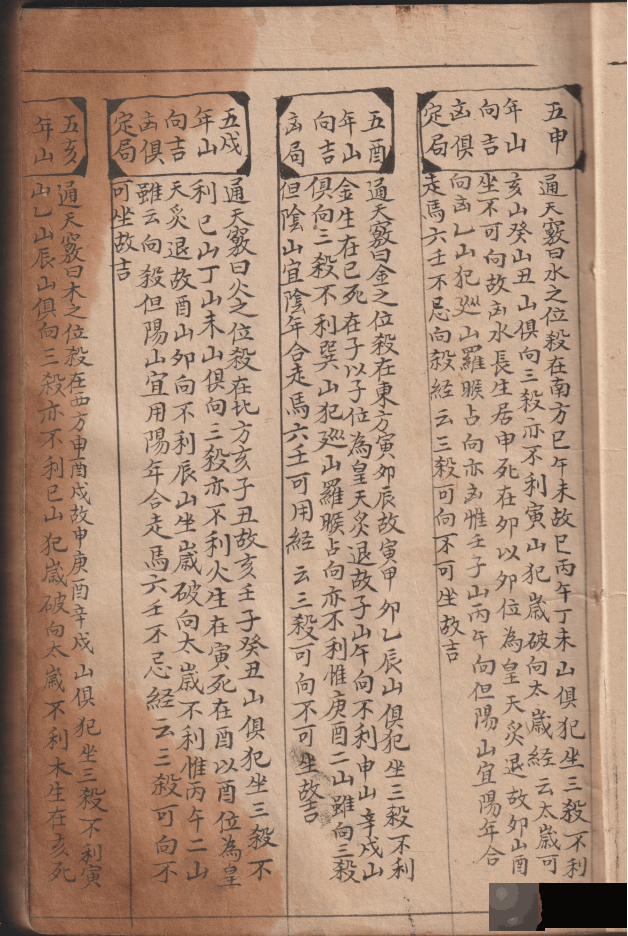 五申
年山
向吉
凶俱
定局
通天竅曰水之位殺在南方巳午未故巳丙午丁未山俱犯坐三殺不利
亥山癸山丑山俱向三殺亦不利寅山犯歲破向太歲經云太歲可
坐不可向故凶水長生居申死在卯以卯位為皇天炙退故卯山酉
向凶乙山犯廵山羅睺占向亦凶惟壬子山丙午向但陽山宜陽年合
走馬六壬不忌向殺經云三殺可向不可坐故吉
五酉
年山
向吉
凶局
通天竅曰金之位殺在東方寅卯辰故寅甲卯乙辰山俱犯坐三殺不利
金生在巳死在子以子位為皇天炙退故子山午向不利申山辛戍山
俱向三殺不利巽山犯廵山羅睺占向亦不利惟庚酉二山雖向三殺
但陰山宜陰年合走馬六壬可用經云三殺可向不可坐故吉
五戍
年山
向吉
凶俱
定局
通天竅曰火之位殺在北方亥子丑故亥壬子癸丑山俱犯坐三殺不
利巳山丁山未山俱向三殺亦不利火生在寅死在酉以酉位為皇
天炙退故酉山卯向不利辰山坐歲破向太歲不利惟丙午二山
雖云向殺但陽山宜用陽年合走馬六壬不忌經云三殺可向不
可坐故吉
五亥
年山
通天竅曰木之位殺在西方申酉戍故申庚酉辛戍山俱犯坐三殺不利寅
山乙山辰山俱向三殺亦不利巳山犯歲破向太歲不利木生在亥死